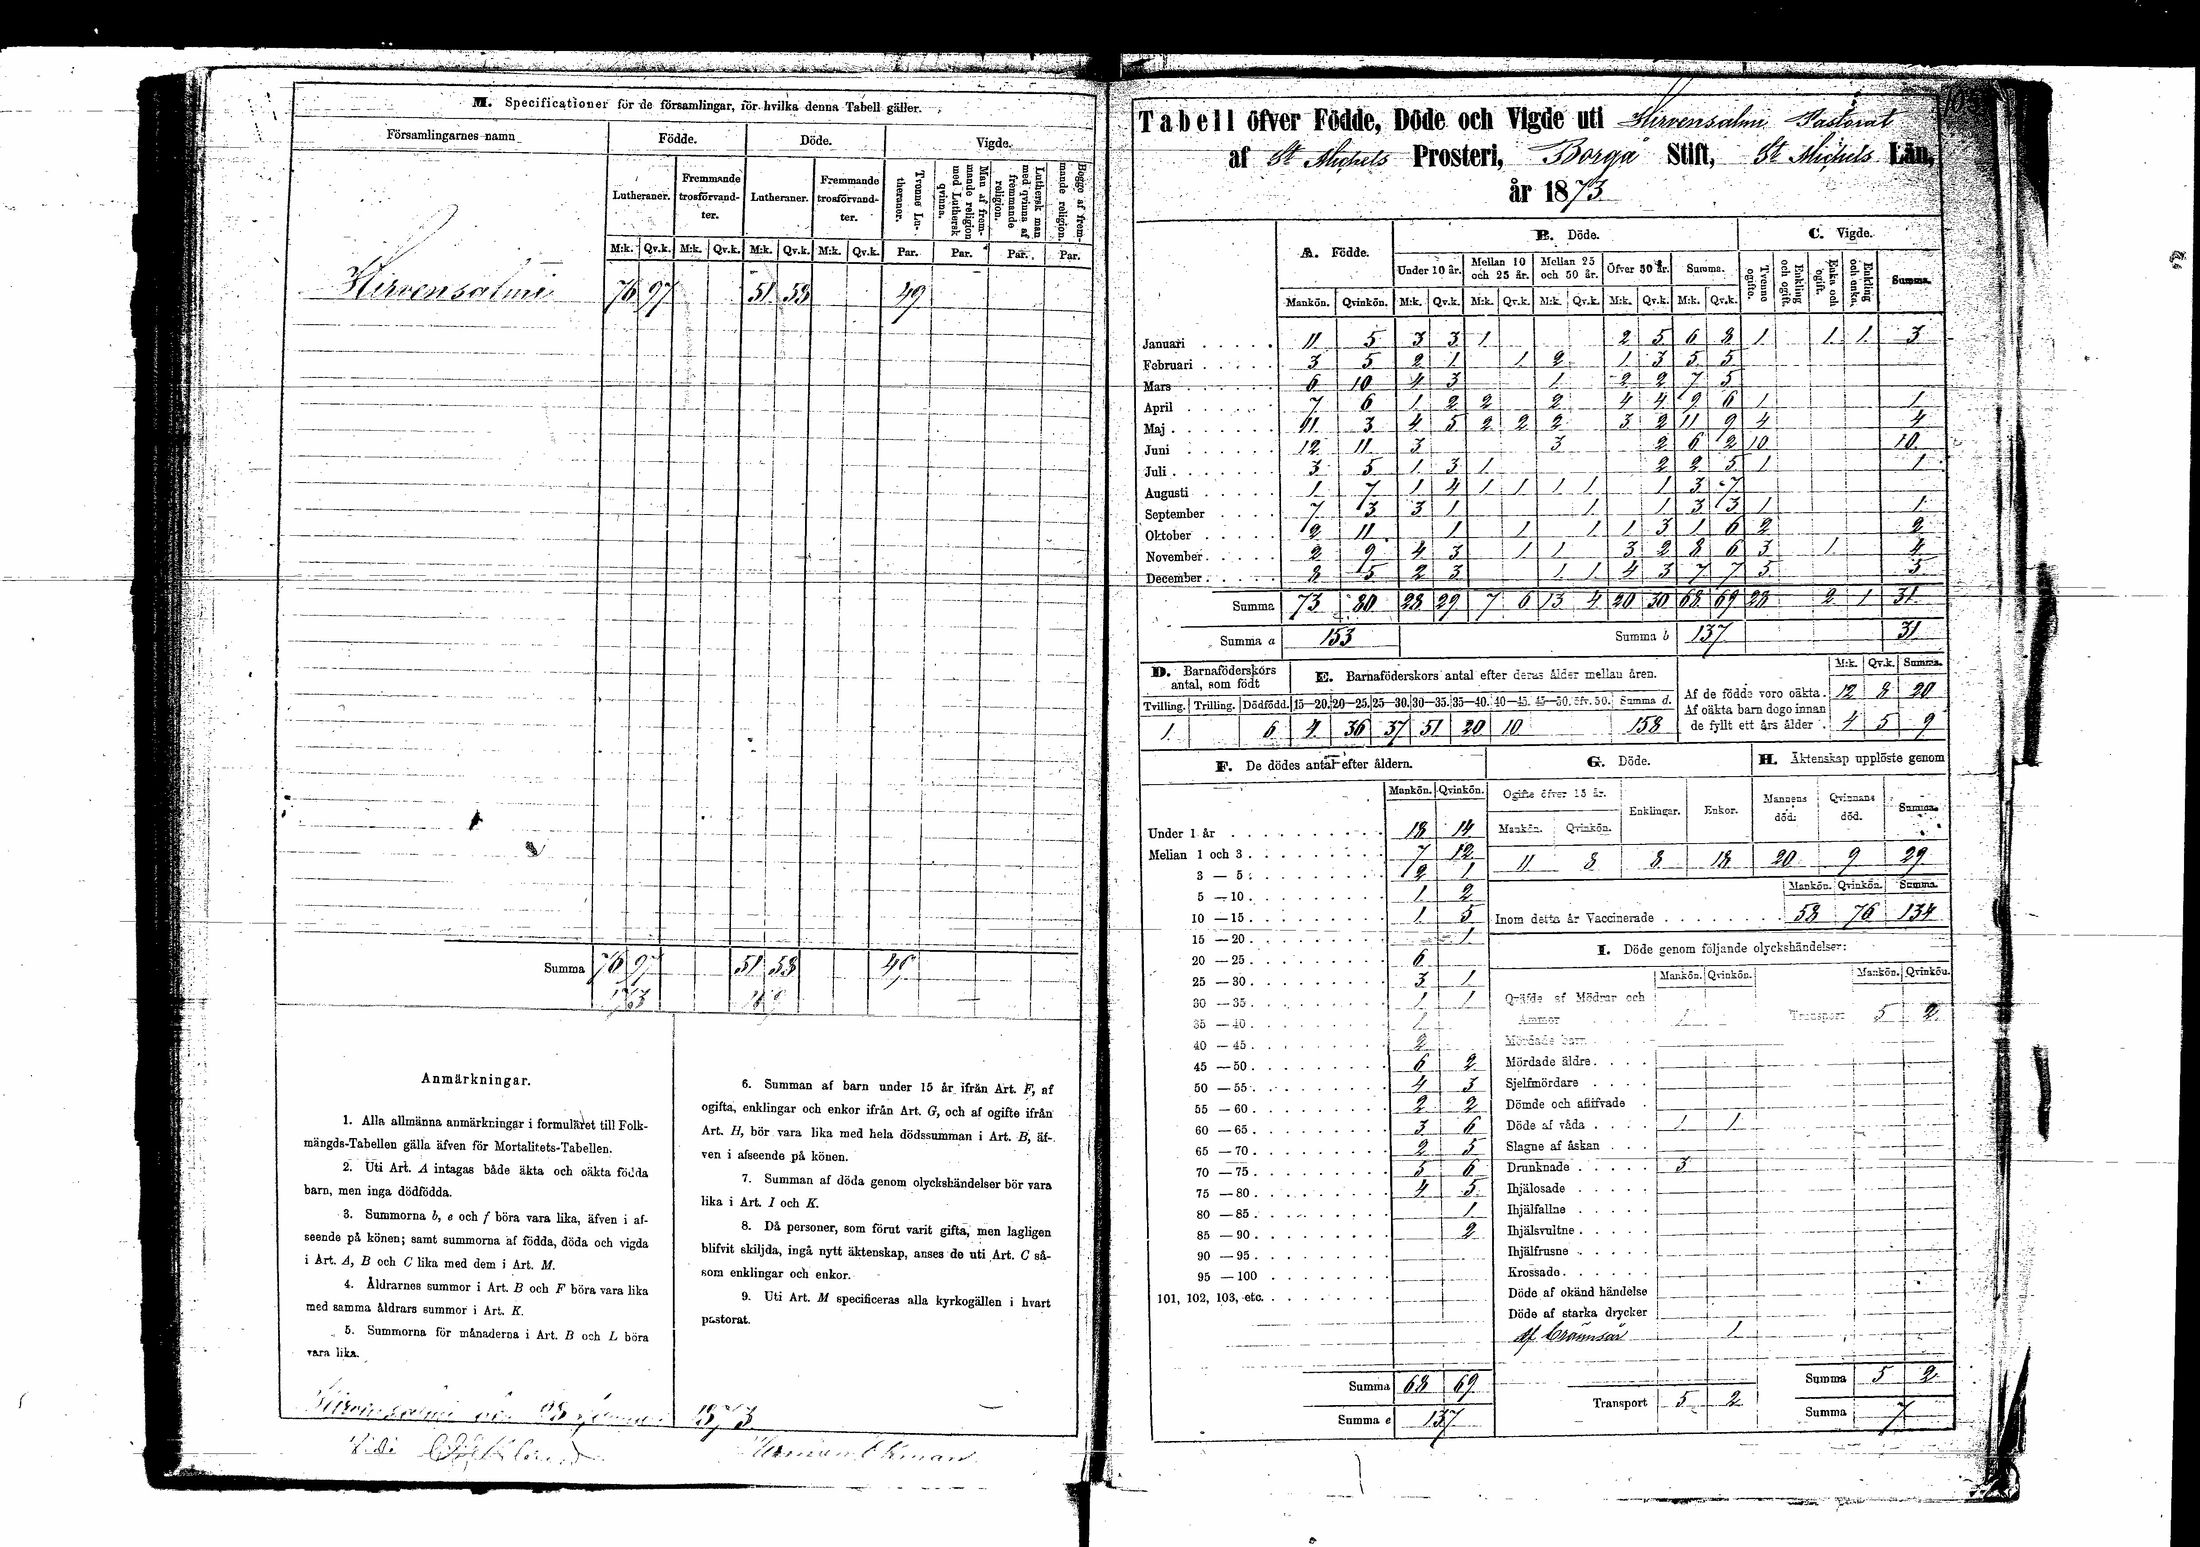 M. Specificationer för de församlingar, för hvilka denna Tabell gäller.
Församlingarnes namn Födde. Döde. Vigde.
Lutheraner. Fremmande trosförvandter. Lutheraner. Fremmande trosförvandter. Tvenne Lutheraner. Man af fremmande religion med Luthersk qvinna. Luthersk man med qvinna af fremmande religion. Begge af fremmande religion.
M:k. Qv.k. M:k. Qv.k. M:k. Qv.k. M:k. Qv.k. Par. Par. Par. Par.
Hirvensalmi 76 97 51 58 49
Summa 76 97 51 58 49
173
Anmärkningar.
1. Alla allmänna anmärkningar i formuläret till Folk-
mängds-Tabellen gälla äfven för Mortalitets-Tabellen.
2. Uti Art. A intagas både äkta och oäkta födda
barn, men inga dödfödda.
3. Summorna b, e och f böra vara lika, äfven i af-
seende på könen; samt summorna af födda, döda och vigda
i Art. A, B och C lika med dem i Art. M.
4. Åldrarnes summor i Art. B och F böra vara lika
med samma åldrars summor i Art. K.
5. Summorna för månaderna i Art. B och L böra
vara lika.
6. Summan af barn under 15 år ifrån Art. F, af
ogifta, enklingar och enkor ifrån Art. G, och af ogifte ifrån
Art. H, bör vara lika med hela dödssumman i Art. B, äf-
ven i afseende på könen.
7. Summan af döda genom olyckshändelser bör vara
lika i Art. I och K.
8. Då personer, som förut varit gifta, men lagligen
blifvit skiljda, ingå nytt äktenskap, anses de uti Art. C så-
som enklingar och enkor.
9. Uti Art. M specificeras alla kyrkogällen i hvart
pastorat.
Hirvensalmi 1873
Herman Ekman
Tabell öfver Födde, Döde och Vigde uti Hirvensalmi Pastorat
af St Michels Prosteri, Borgå Stift, St Michels Län,
år 1873
A. Födde. B. Döde. C. Vigde.
Under 10 år. Mellan 10 och 25 år. Mellan 25 och 50 år. Öfver 50 år. Summa. Tvenne ogifte. Enkling och ogift. Enka och ogift. Enkling och enka. Summa.
Mankön. Qvinkön. M:k. Qv.k. M:k. Qv.k. M:k. Qv.k. M:k. Qv.k. M:k. Qv.k.
Januari 11 5 3 3 1 2 5 6 8 1 1 1 3
Februari 3 5 2 1 1 2 1 3 5 5
Mars 6 10 4 3 1 2 2 7 5
April 7 6 1 2 2 2 4 4 9 6 1 1
Maj 11 3 4 5 2 2 2 3 2 11 9 4 4
Juni 12 11 3 3 2 6 2 10 10
Juli 3 5 1 3 1 2 2 5 1 1
Augusti 1 7 1 4 1 1 1 1 1 3 7
September 7 3 3 1 1 1 3 3 1 1
Oktober 2 11 1 1 1 1 3 1 6 2 2
November 2 9 4 3 1 1 3 2 8 6 3 1 4
December 8 5 2 3 1 1 4 3 7 7 5 5
Summa 73 80 28 29 7 6 13 4 20 30 68 69 28 2 1 31
Summa a 153 Summa b 137 31
D. Barnaföderskors antal, som födt
Tvilling. Trilling. Dödfödd.
1 6
E. Barnaföderskors antal efter deras ålder mellan åren.
15—20. 20—25. 25—30. 30—35. 35—40. 40—45. 45—50. öfv. 50. Summa d.
4 36 37 51 20 10 158
M:k. Qv.k. Summa.
Af de födde voro oäkta. 12 8 20
Af oäkta barn dogo innan
de fyllt ett års ålder 4 5 9
F. De dödes antal efter åldern.
Mankön. Qvinkön.
Under 1 år 18 14
Mellan 1 och 3 7 12
3 — 5 2 1
5 — 10 1 2
10 — 15 1 5
15 — 20 1
20 — 25 6
25 — 30 3 1
30 — 35 1 1
35 — 40 1
40 — 45 2
45 — 50 6 2
50 — 55 4 3
55 — 60 2 2
60 — 65 3 6
65 — 70 2 5
70 — 75 5 6
75 — 80 4 5
80 — 85 1
85 — 90 2
90 — 95
95 — 100
101, 102, 103, etc.
Summa 68 69
Summa e 137
G. Döde.
Ogifte öfver 15 år. Enklingar. Enkor.
Mankön. Qvinkön.
11 8 8 18
H. Äktenskap upplöste genom
Mannens död. Qvinnans död. Summa.
20 9 29
Mankön. Qvinkön. Summa.
Inom detta år Vaccinerade 58 76 134
I. Döde genom följande olyckshändelser:
Mankön. Qvinkön. Mankön. Qvinkön.
Qväfde af Mödrar och
Ammor 1 Transport 5 2
Mördade barn
Mördade äldre
Sjelfmördare
Dömde och aflifvade
Döde af våda 1 1
Slagne af åskan
Drunknade 3
Ihjälosade
Ihjälfallne
Ihjälsvultne
Ihjälfrusne
Krossade
Döde af okänd händelse
Döde af starka drycker
af Brännsår 1
Transport 5 2
Summa 5 2
Summa 7